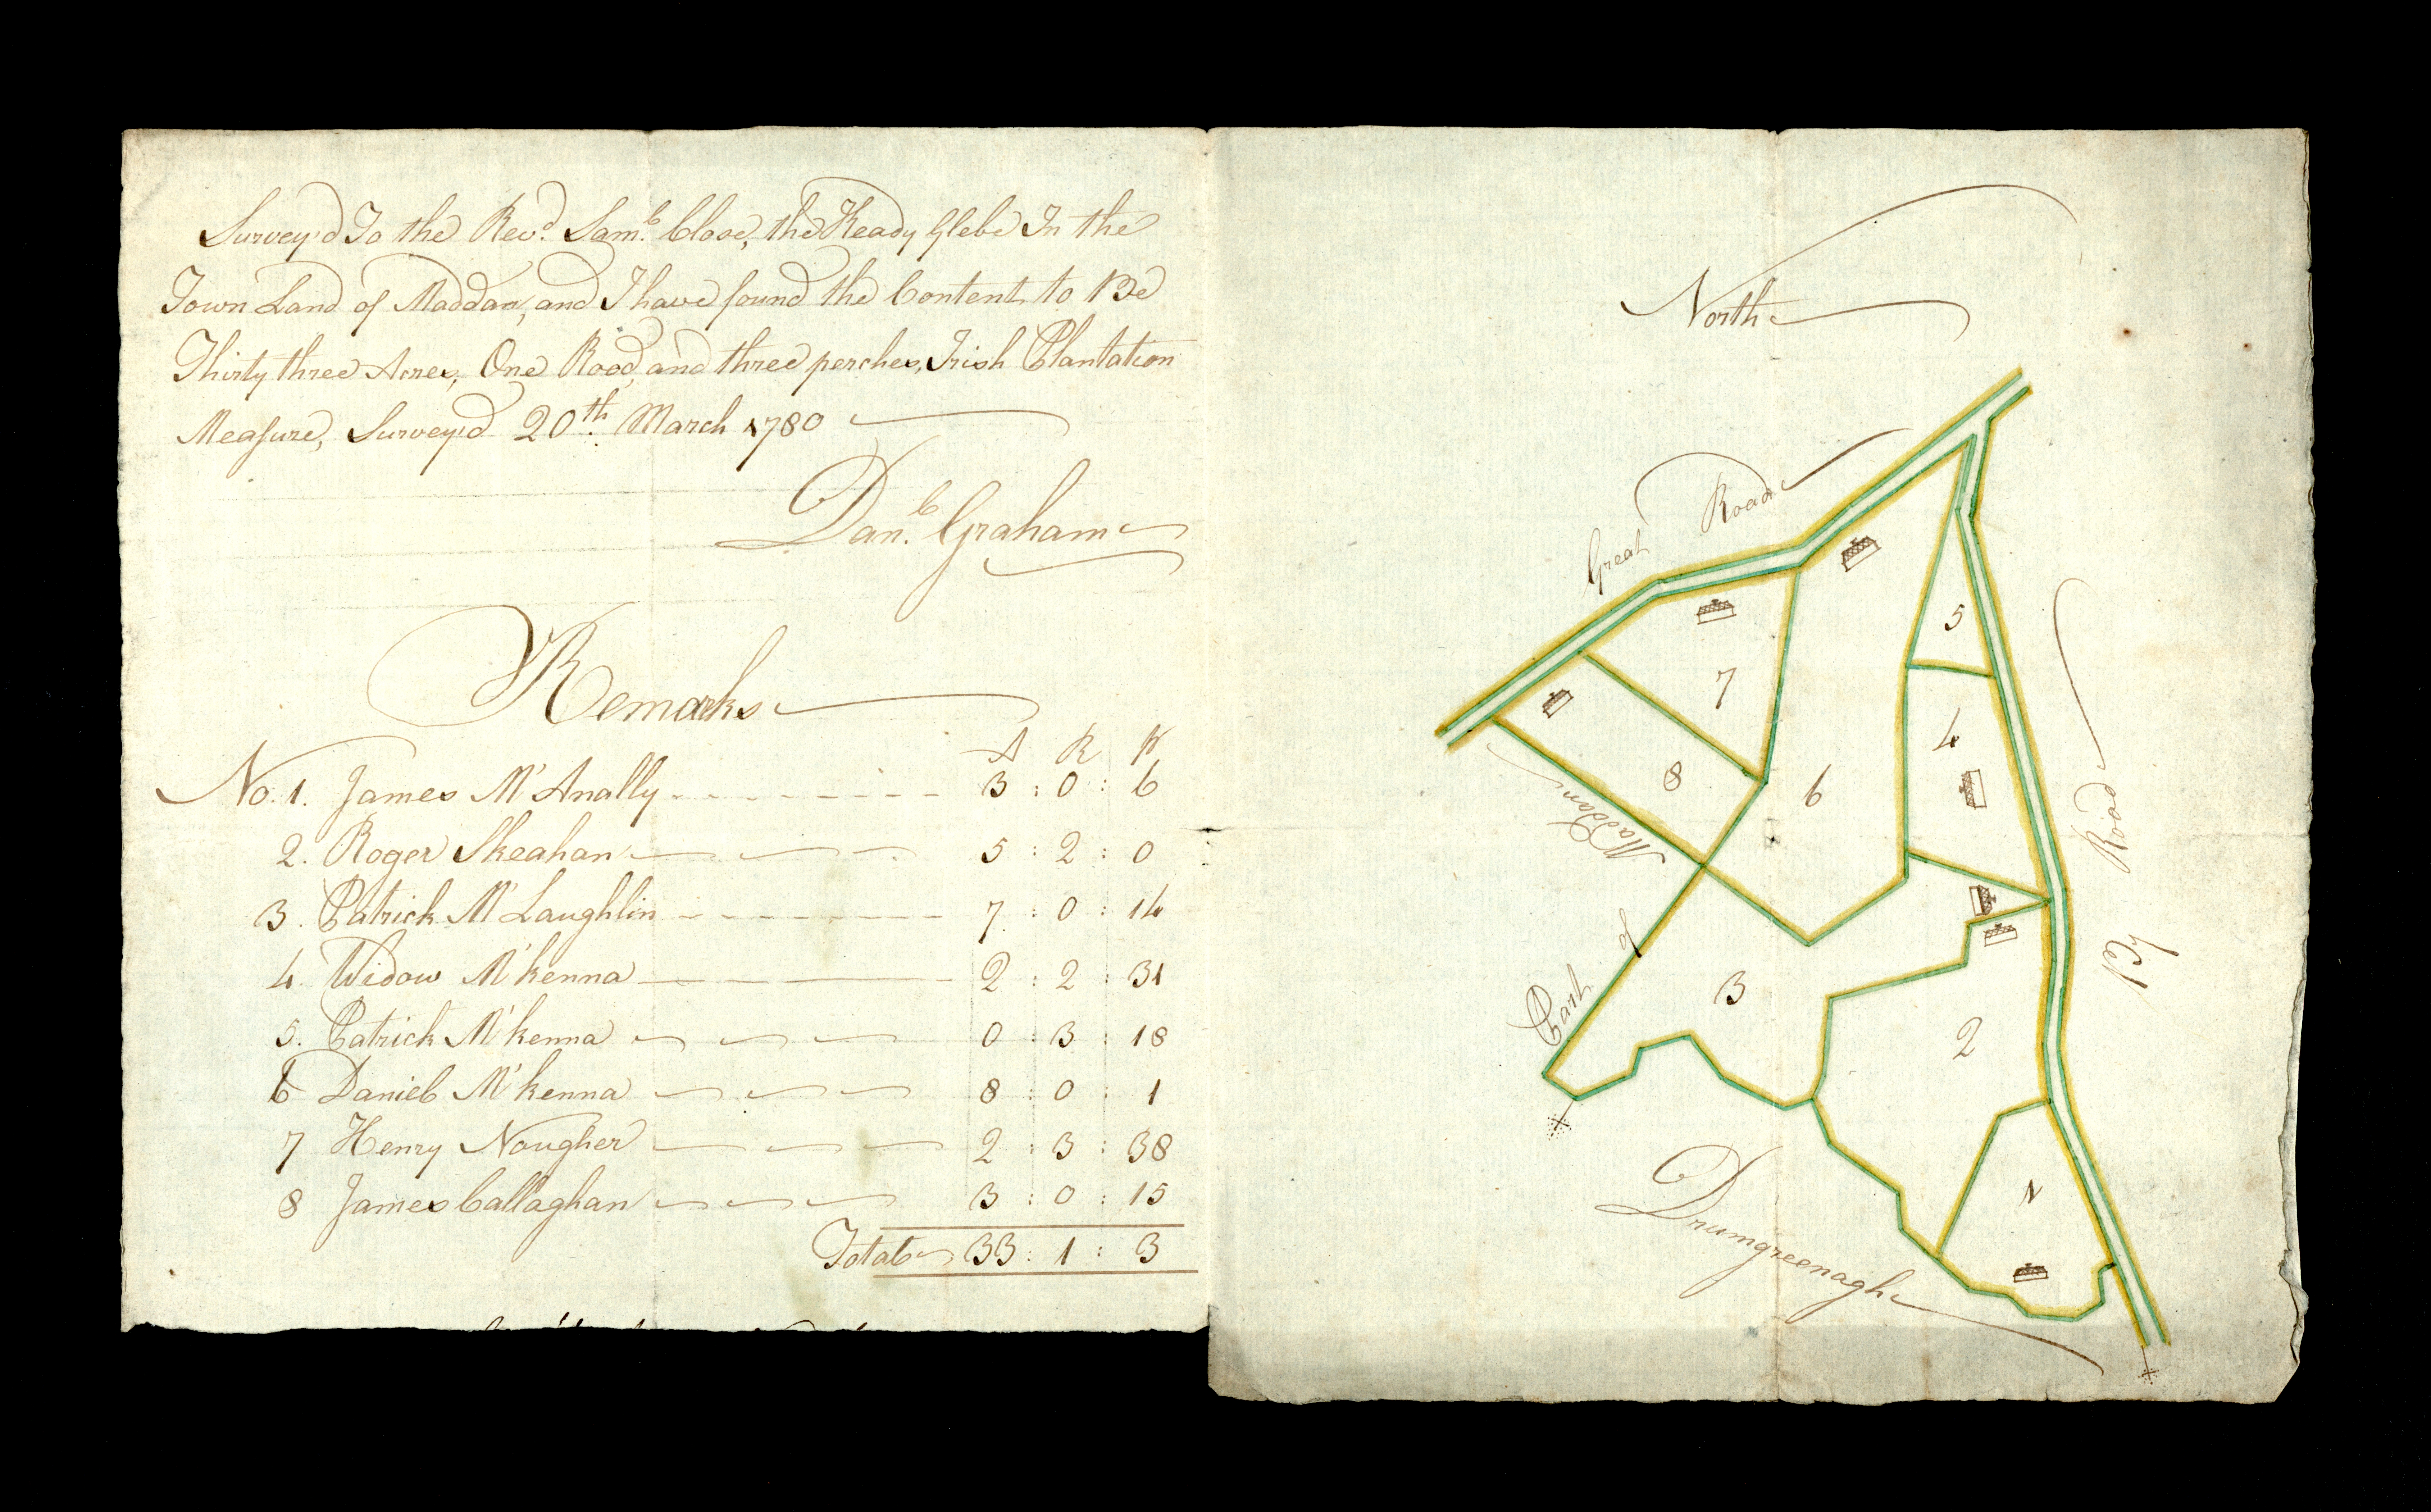 Survey'd To the Rev.d Sam.l Close, the Keady Glebe In the
Town Land of Maddan, and I have found the Content to Be
Thirty three Acres, One Rood, and three perches, Irish Plantation
Measure, Survey'd 20th. March 1780
Dan.l Graham
Remarks
A R P
No. 1. James M'Anally 3 : 0 : 6
2. Roger Skeahan 5 : 2 : 0
3. Patrick M'Laughlin 7 : 0 : 14
4 Widow M'kenna 2 : 2 : 31
5. Patrick M'kenna 0 : 3 : 18
6 Daniel M'kenna 8 : 0 : 1
7 Henry Nougher 2 : 3 : 38
8 James Callaghan 3 : 0 : 15
Total 33 : 1 : 3
North
Great Road
By Road
Part of Maddan
Drumgreenagh
5
7
4
8
6
3
2
1